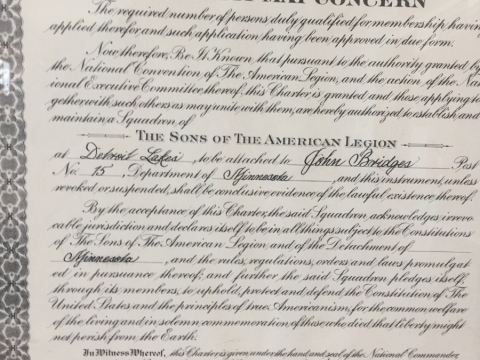 MAY CONCERN
The required number of persons duly qualified for membership, having
applied therefor and such application having been approved in due form.
Now therefore, Be It Known, that pursuant to the authority granted by
the National Convention of The American Legion, and the action of the Nat-
ional Executive Committee thereof, this Charter is granted, and those applying to-
gether with such others as may unite with them, are hereby authorized to establish and
maintain a Squadron of
THE SONS OF THE AMERICAN LEGION
at Detroit Lakes, to be attached to John Bridges Post
No. 15, Department of Minnesota, and this instrument, unless
revoked or suspended, shall be conclusive evidence of the lawful existence thereof.
By the acceptance of this Charter, the said Squadron acknowledges irrevo-
cable jurisdiction and declares itself to be in all things subject to the Constitutions
of The Sons of The American Legion and of the Detachment of
Minnesota, and the rules, regulations, orders and laws promulgat-
ed in pursuance thereof; and further the said Squadron pledges itself,
through its members, to uphold, protect and defend the Constitution of The
United States, and the principles of true Americanism, for the common welfare
of the living and in solemn commemoration of those who died that liberty might
not perish from the Earth.
In Witness Whereof, this Charter is given under the hand and seal of the National Commander